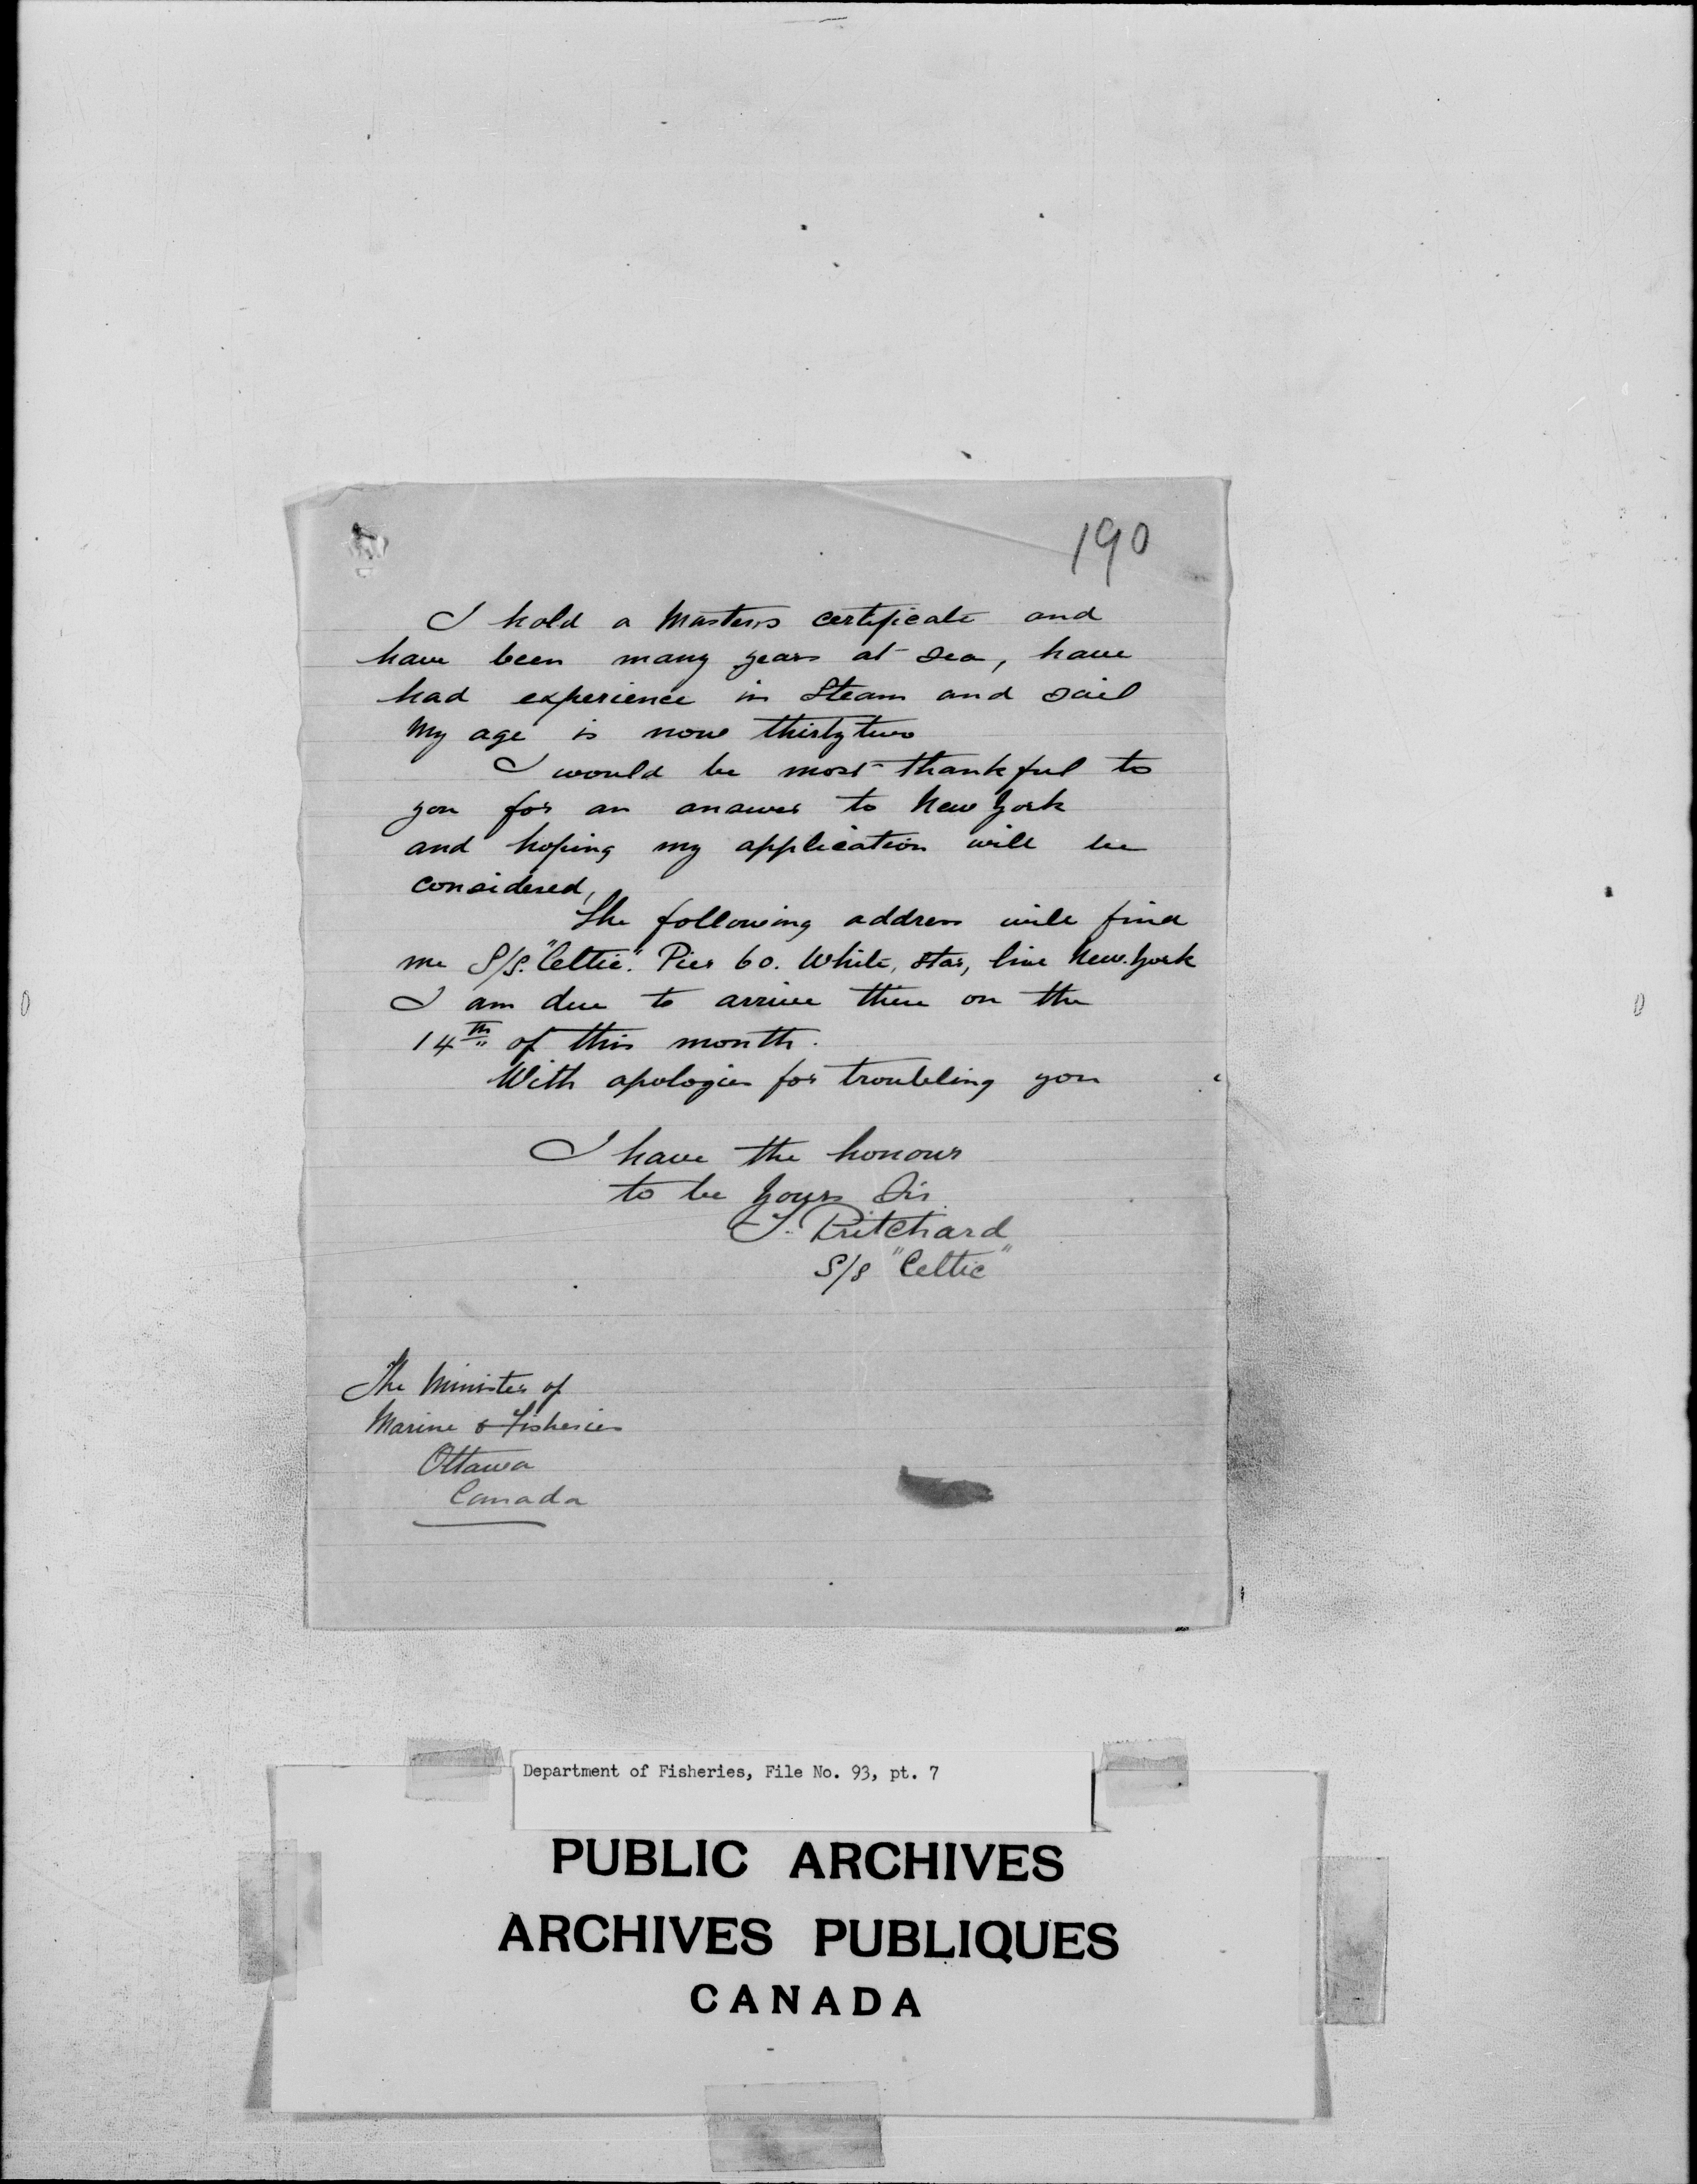 190
I hold a Masters certificate and
have been many years at sea, have
had experience in Steam and sail
My age is now thirty two
I would be most thankful to
you for an answer to New York
and hoping my application will be
considered,
The following address will find
me S/S. "Celtic". Pier 60. White, Star, line New. York
I am due to arrive there on the
14th of this month.
With apologies for troubling you
I have the honour
to be Yours Sir
T. Pritchard
S/S "Celtic"
The Minister of
Marine & Fisheries
Ottawa
Canada
Department of Fisheries, File No. 93, pt. 7
PUBLIC ARCHIVES
ARCHIVES PUBLIQUES
CANADA